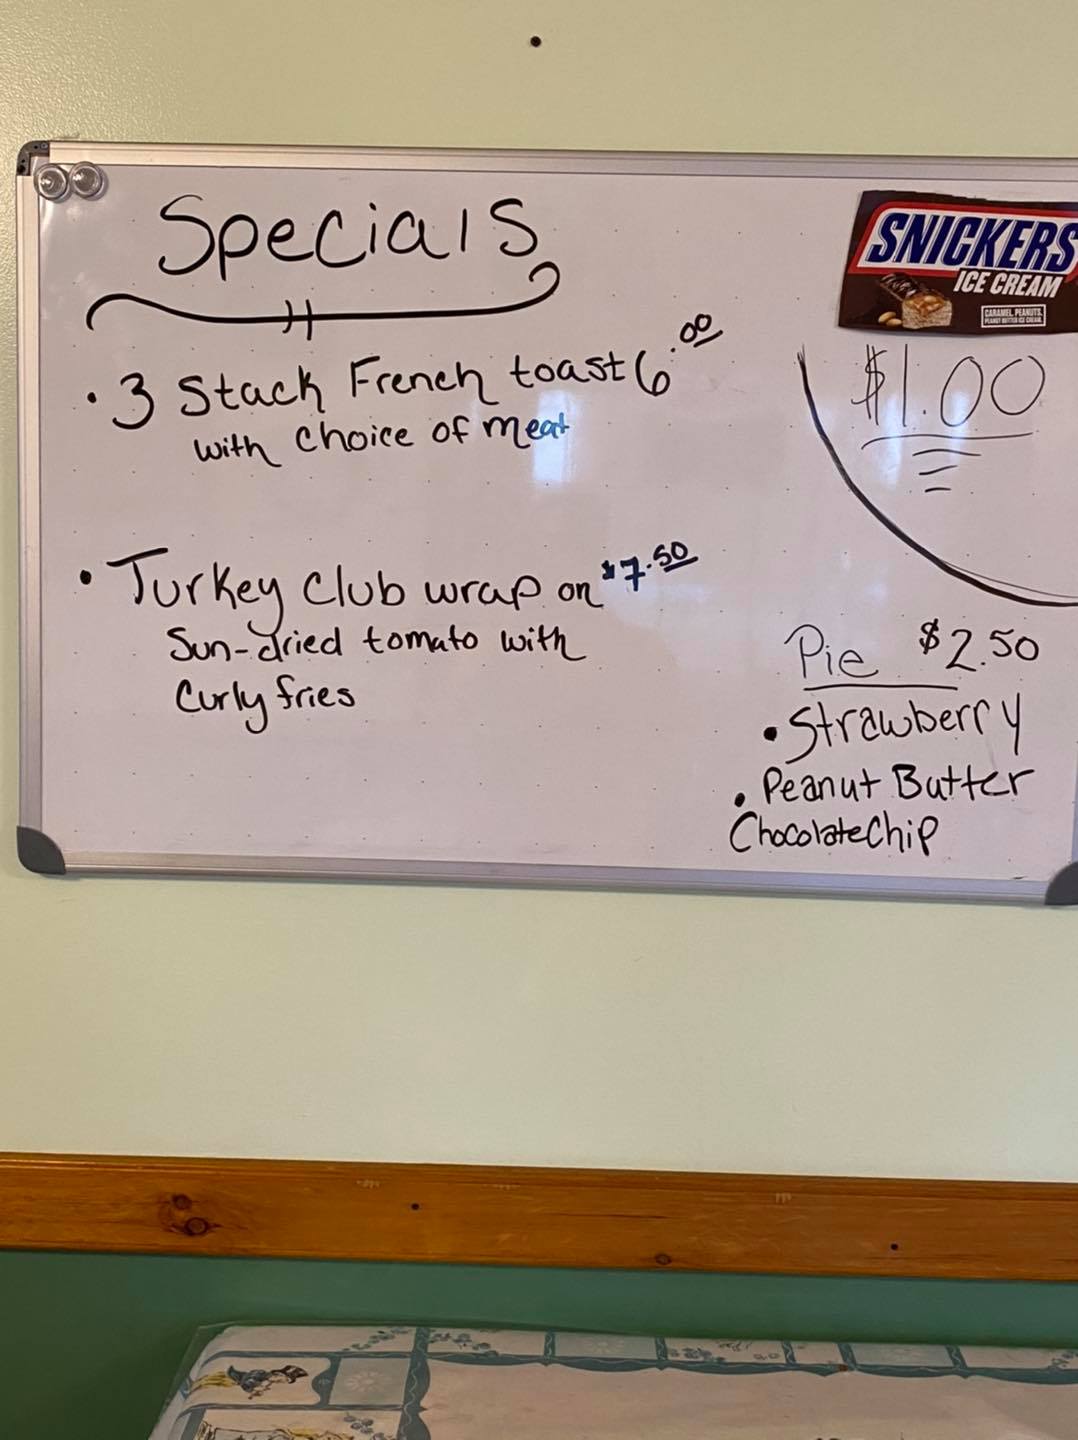 Specials
• 3 Stack French toast 6.00
with choice of meat
• Turkey club wrap on $7.50
Sun-dried tomato with
Curly fries
SNICKERS
ICE CREAM
CARAMEL, PEANUTS,
PEANUT BUTTER ICE CREAM.
$1.00
Pie $2.50
• Strawberry
• Peanut Butter
Chocolate Chip